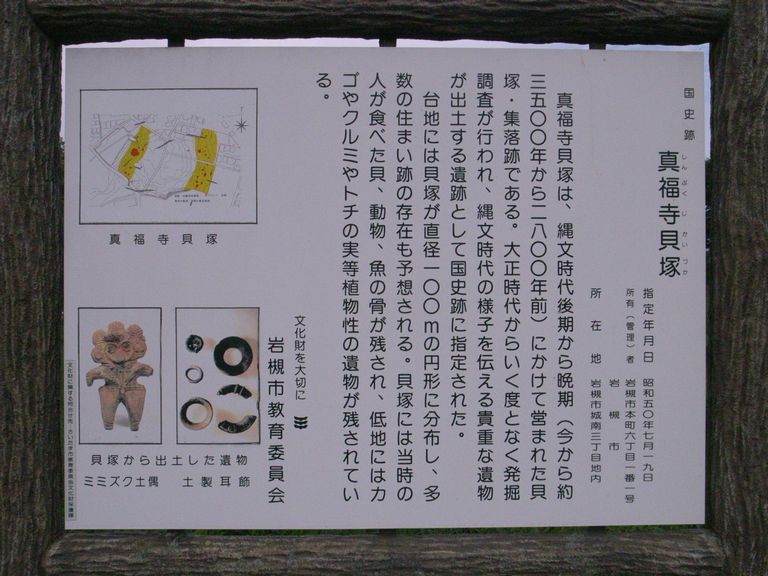 国史跡
真福寺貝塚
しんぷくじかいづか
指定年月日　昭和五〇年七月一九日
所有（管理）者　岩槻市本町六丁目一番一号
岩槻市
所在地　岩槻市城南三丁目地内
真福寺貝塚は、縄文時代後期から晩期（今から約
三五〇〇年から二八〇〇年前）にかけて営まれた貝
塚・集落跡である。大正時代からいく度となく発掘
調査が行われ、縄文時代の様子を伝える貴重な遺物
が出土する遺跡として国史跡に指定された。
台地には貝塚が直径一〇〇mの円形に分布し、多
数の住まい跡の存在も予想される。貝塚には当時の
人が食べた貝、動物、魚の骨が残され、低地にはカ
ゴやクルミやトチの実等植物性の遺物が残されてい
る。
文化財を大切に
岩槻市教育委員会
真福寺貝塚
貝塚から出土した遺物
ミミズク土偶　土製耳飾
文化財に関する問合せ先：さいたま市教育委員会文化財保護課